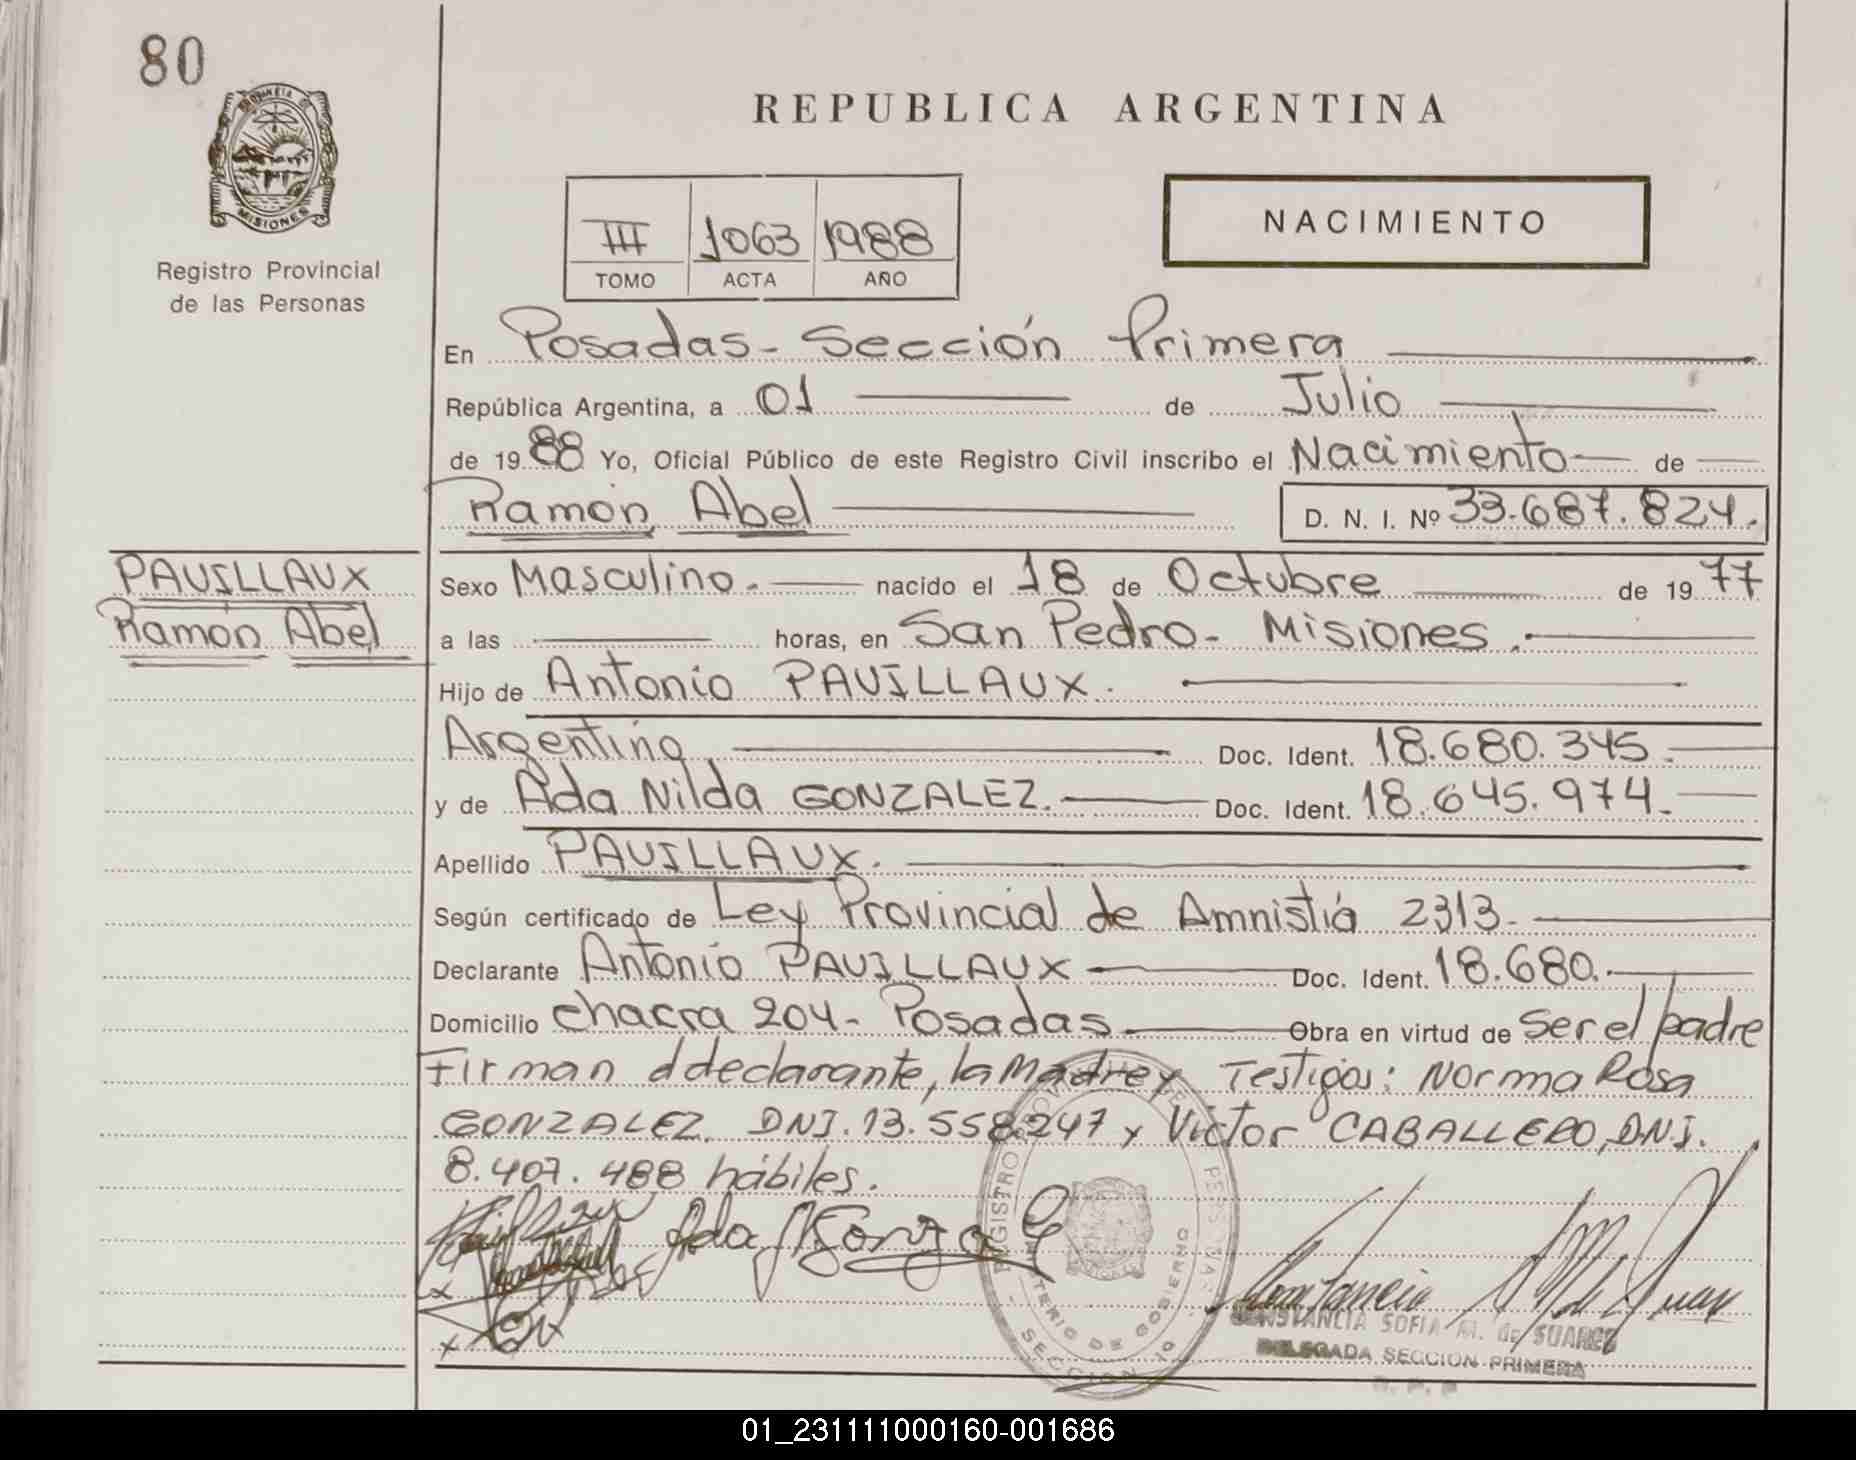 80
PROVINCIA DE
MISIONES
Registro Provincial
de las Personas
REPUBLICA ARGENTINA
III 1063 1988
TOMO ACTA AÑO
NACIMIENTO
En Posadas - Sección Primera
República Argentina, a 01 de Julio
de 1988 Yo, Oficial Público de este Registro Civil inscribo el Nacimiento de
Ramón Abel D. N. I. Nº 33.687.824.
PAUILLAUX
Ramón Abel
Sexo Masculino. nacido el 18 de Octubre de 1977
a las horas, en San Pedro - Misiones.
Hijo de Antonio PAUILLAUX.
Argentino Doc. Ident. 18.680.345.
y de Ada Nilda GONZALEZ. Doc. Ident. 18.645.974.
Apellido PAUILLAUX.
Según certificado de Ley Provincial de Amnistiá 2313.
Declarante Antonio PAUILLAUX Doc. Ident. 18.680.
Domicilio chacra 204 - Posadas Obra en virtud de ser el padre
Firman el declarante, la Madre y Testigos: Norma Rosa
GONZALEZ, DNI. 13.558.247 y Victor CABALLERO, D.N.I.
8.407.488 hábiles.
Ada N Gonzalez
REGISTRO PROVINCIAL DE PERSONAS
MINISTERIO DE GOBIERNO
SECCION 1º
CONSTANCIA SOFIA M. de SUAREZ
DELEGADA SECCION PRIMERA
01_231111000160-001686